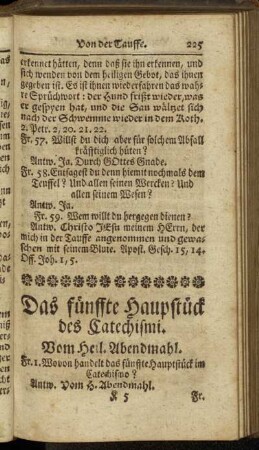 Von der Tauffe. 225
erkennet hätten, denn daß sie ihn erkennen, und
sich wenden von dem heiligen Gebot, das ihnen
gegeben ist. Es ist ihnen wiederfahren das wah-
re Sprüchwort: der Hund frißt wieder, was
er gespyen hat, und die Sau wältzet sich
nach der Schwemme wieder in dem Koth.
2. Petr. 2, 20. 21. 22.
Fr. 57. Willst du dich aber für solchem Abfall
kräfftiglich hüten?
Antw. Ja. Durch GOttes Gnade.
Fr. 58. Entsagest du denn hiemit nochmals dem
Teuffel? Und allen seinen Wercken? Und
allen seinem Wesen?
Antw. Ja.
Fr. 59. Wem willt du hergegen dienen?
Antw. Christo JEsu meinem HErrn, der
mich in der Tauffe angenommen und gewa-
schen mit seinem Blute. Apost. Gesch. 15, 14.
Off. Joh. 1, 5.
Das fünffte Haupstück
des Catechismi.
Vom Heil. Abendmahl.
Fr. 1. Wovon handelt das fünffte Hauptstück im
Catechismo?
Antw. Vom H. Abendmahl.
K 5 Fr.